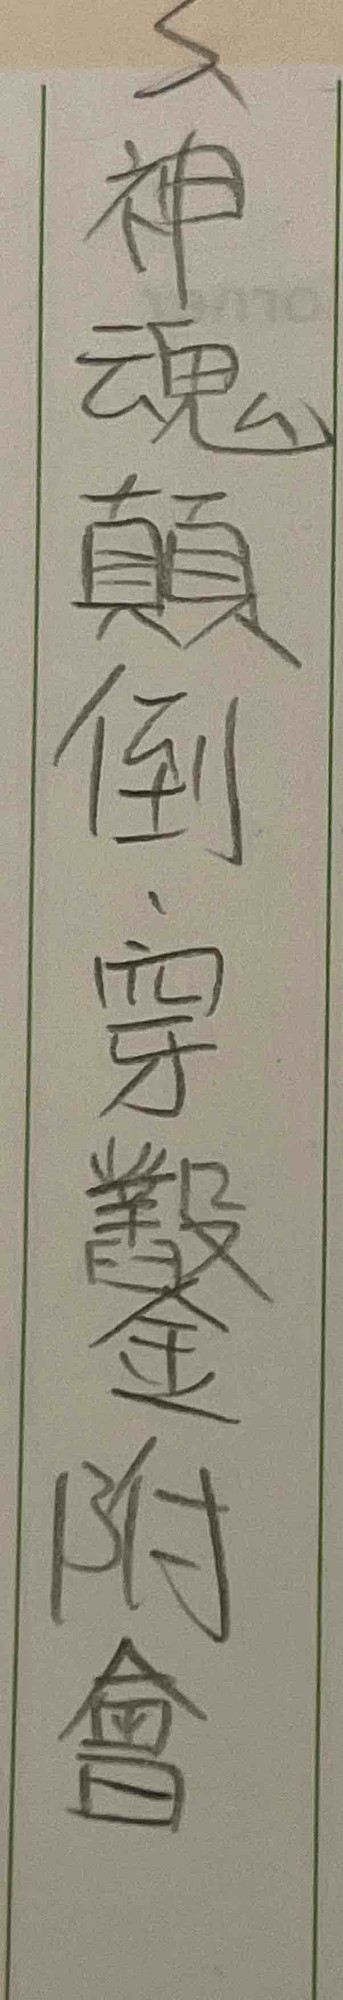 神魂顛倒、穿鑿附會